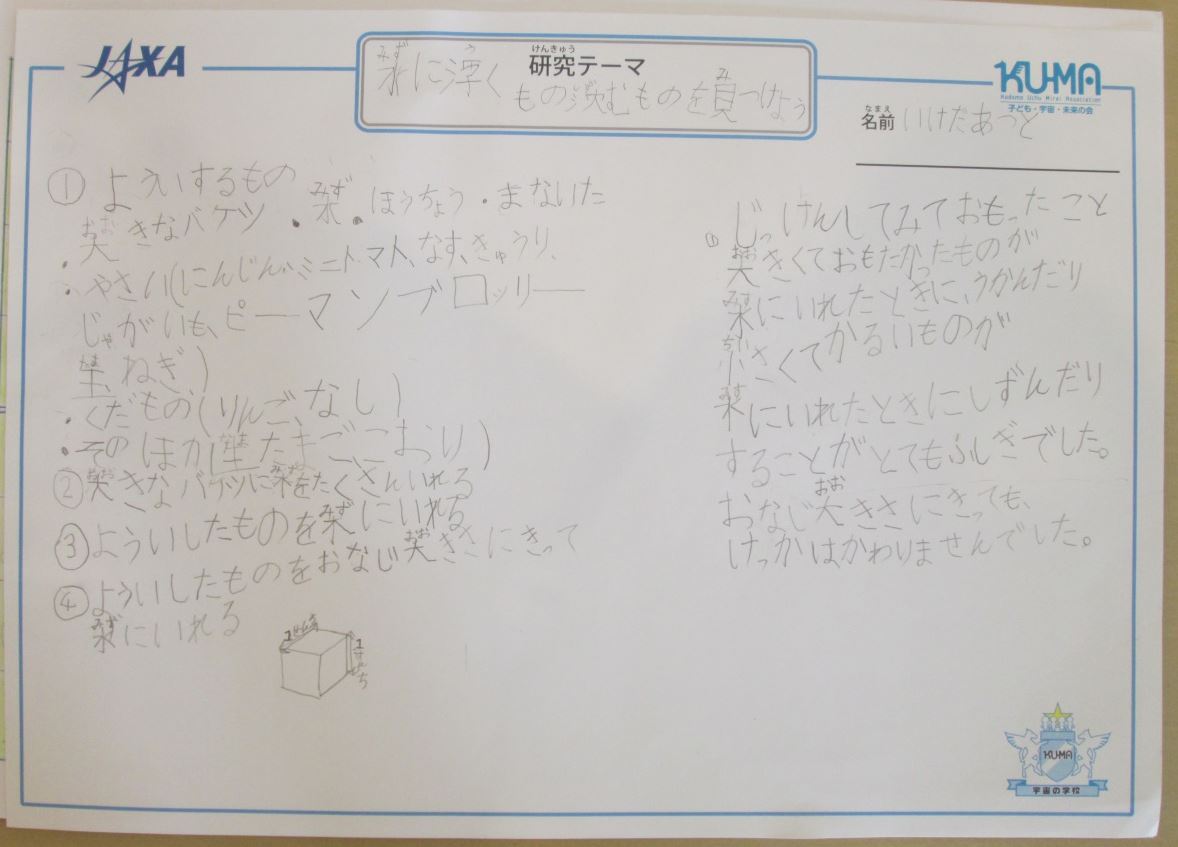 JAXA
みず う けんきゅう
水に浮く 研究テーマ
しず み
もの沈むものを見つけよう
KUMA
Kodomo Uchu Mirai Association
子ども・宇宙・未来の会
なまえ
名前 いけだあつと
① よういするもの
おお みず
・大きなバケツ ・水 ・ほうちょう ・まないた
・やさい(にんじん、ミニトマト、なす、きゅうり、
じゃがいも、ピーマンブロッリー
たま
玉ねぎ、)
・くだもの(りんご、なし)
なま
・そのほか(生たまごこおり)
おお みず
② 大きなバケツに水をたくさんいれる
みず
③ よういしたものを水にいれる
おお
④ よういしたものをおなじ大きさにきって
みず
水にいれる
じっけんしてみておもったこと
おお
大きくておもたかったものが
みず
水にいれたときに、うかんだり
ちい
小さくてかるいものが
みず
水にいれたときにしずんだり
することがとてもふしぎでした。
おお
おなじ大きさにきっても、
けっかはかわりませんでした。
KUMA
宇宙の学校